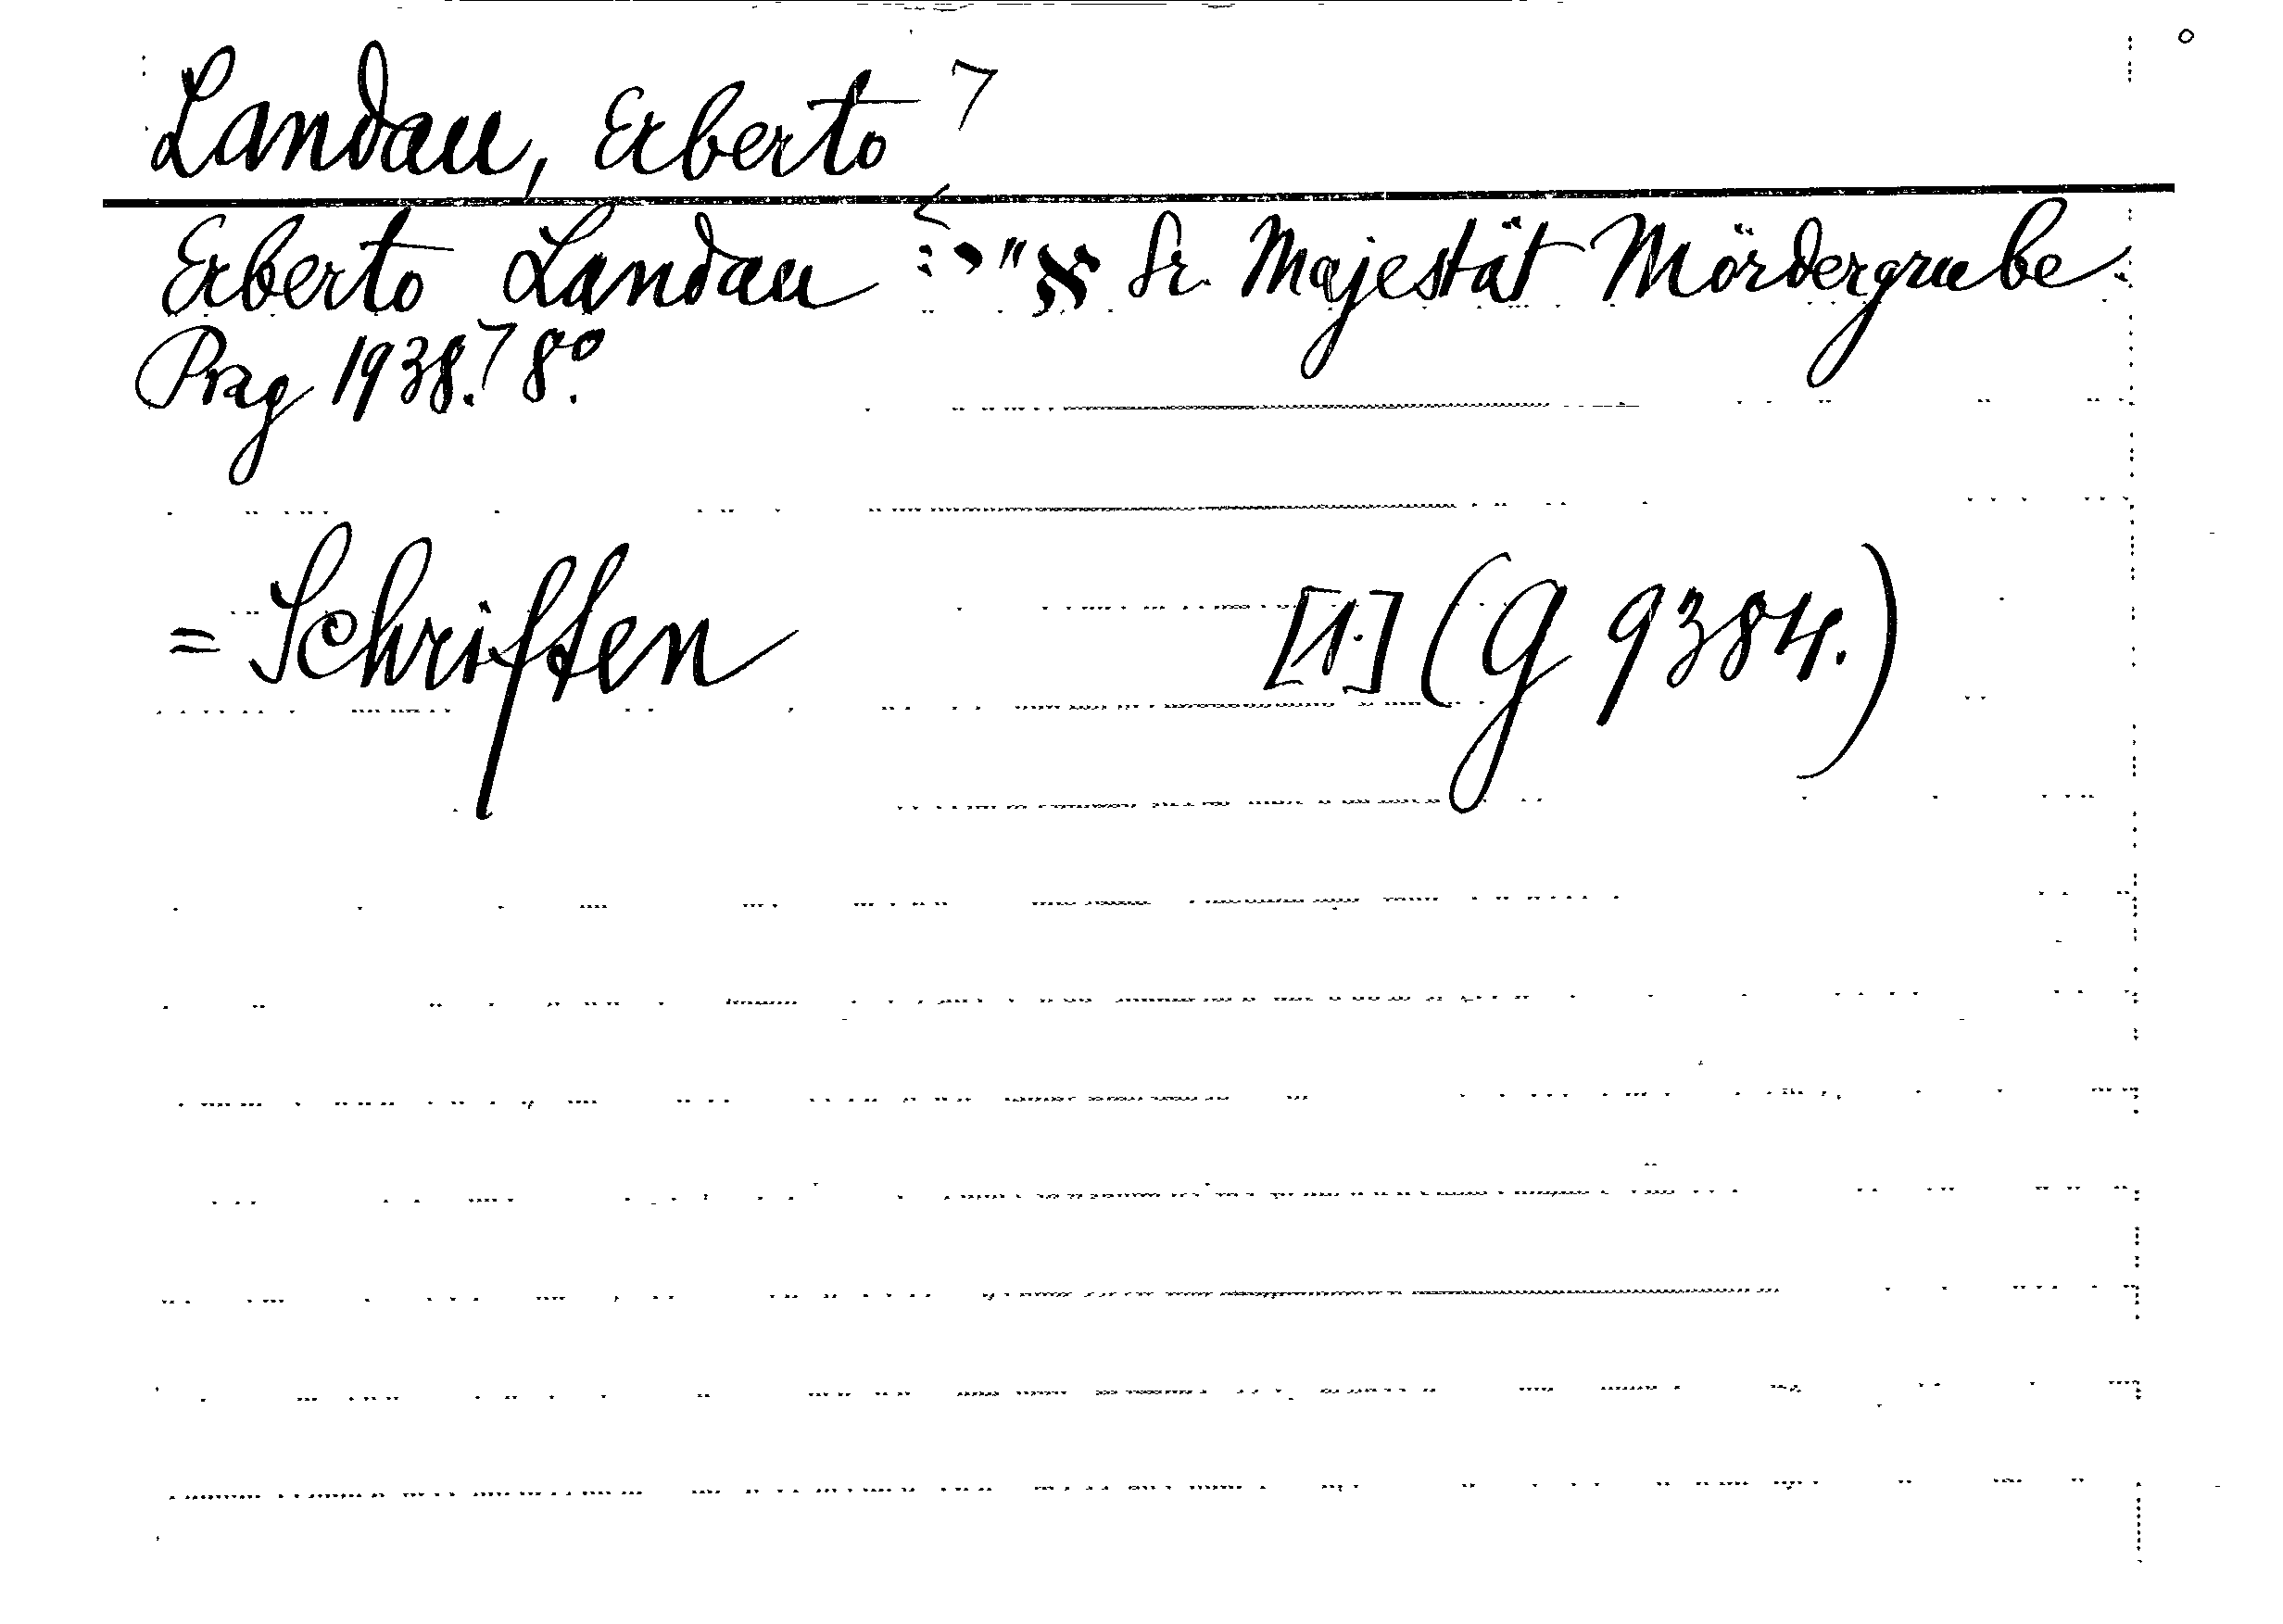 Landau, Erberto 7
Erberto Landau : י"א Sr. Majestät Mördergrube.
Prag 1938. 7 8°.
= Schriften [1.] (G 9384.)